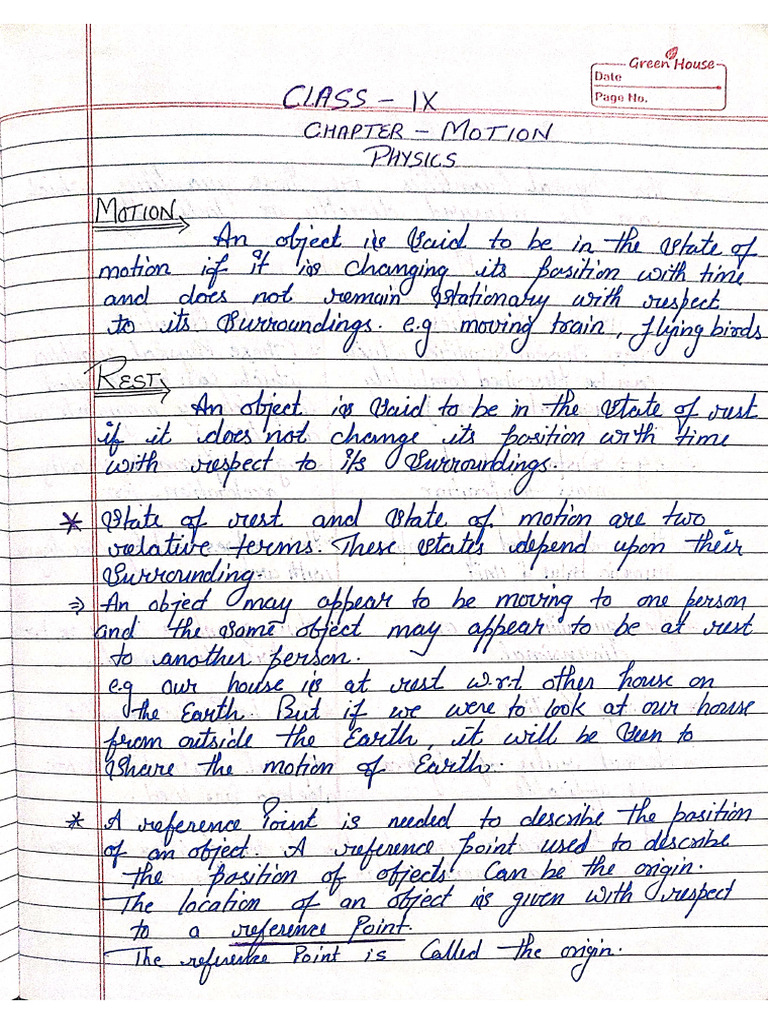 Green House
Date
Page No.
CLASS - IX
CHAPTER - MOTION
PHYSICS
MOTION
An object is said to be in the state of
motion if it is changing its position with time
and does not remain stationary with respect
to its surroundings. e.g moving train, flying birds
REST
An object is said to be in the state of rest
if it does not change its position with time
with respect to its surroundings.
* State of rest and state of motion are two
relative terms. These states depend upon their
surrounding.
⇒ An object may appear to be moving to one person
and the same object may appear to be at rest
to another person.
e.g our house is at rest w.r.t other house on
the Earth. But if we were to look at our house
from outside the Earth, it will be seen to
share the motion of Earth.
* A reference Point is needed to describe the position
of an object. A reference point used to describe
the position of objects can be the origin.
The location of an object is given with respect
to a reference Point.
The reference Point is called the origin.